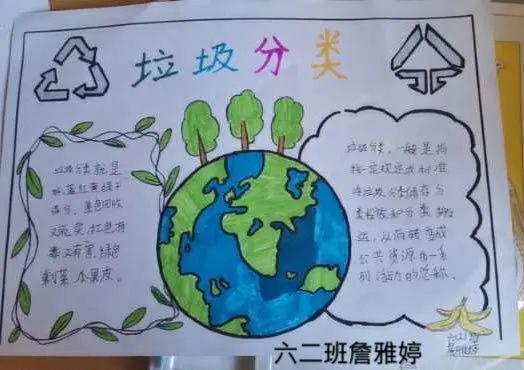 垃圾分类
垃圾分类就是
好,蓝红黄绿干
湿分,蓝色回收
又玩完,红色将
毒又有害,绿色
剩菜瓜果皮。
垃圾分类,一般是指
按一定规定或标准
将垃圾分类储存分
类投放和分类搬
运,从而转变成
公共资源的一系
列活动的总称。
六二班詹雅婷